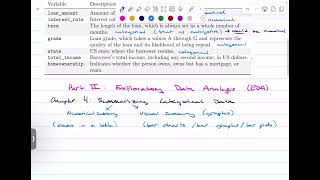 Variable Description
loan_amount Amount of
interest_rate Interest
term The length of the loan, which is always set as a whole number of
months. categorical could be numerical
grade Loan grade, which takes a values A through G and represents the
quality of the loan and its likelihood of being repaid categorical
state US state where the borrower resides categorical
total_income Borrower's total income, including any second income, in US dollars.
homeownership Indicates whether the person owns, owns but has a mortgage, or
rents
Part II: Exploratory Data Analysis (EDA)
Chapter 4: Summarizing Categorical Data
Numerical summary Visual summary (graphs)
(counts in a table) (bar charts / bar graphs / bar plots)